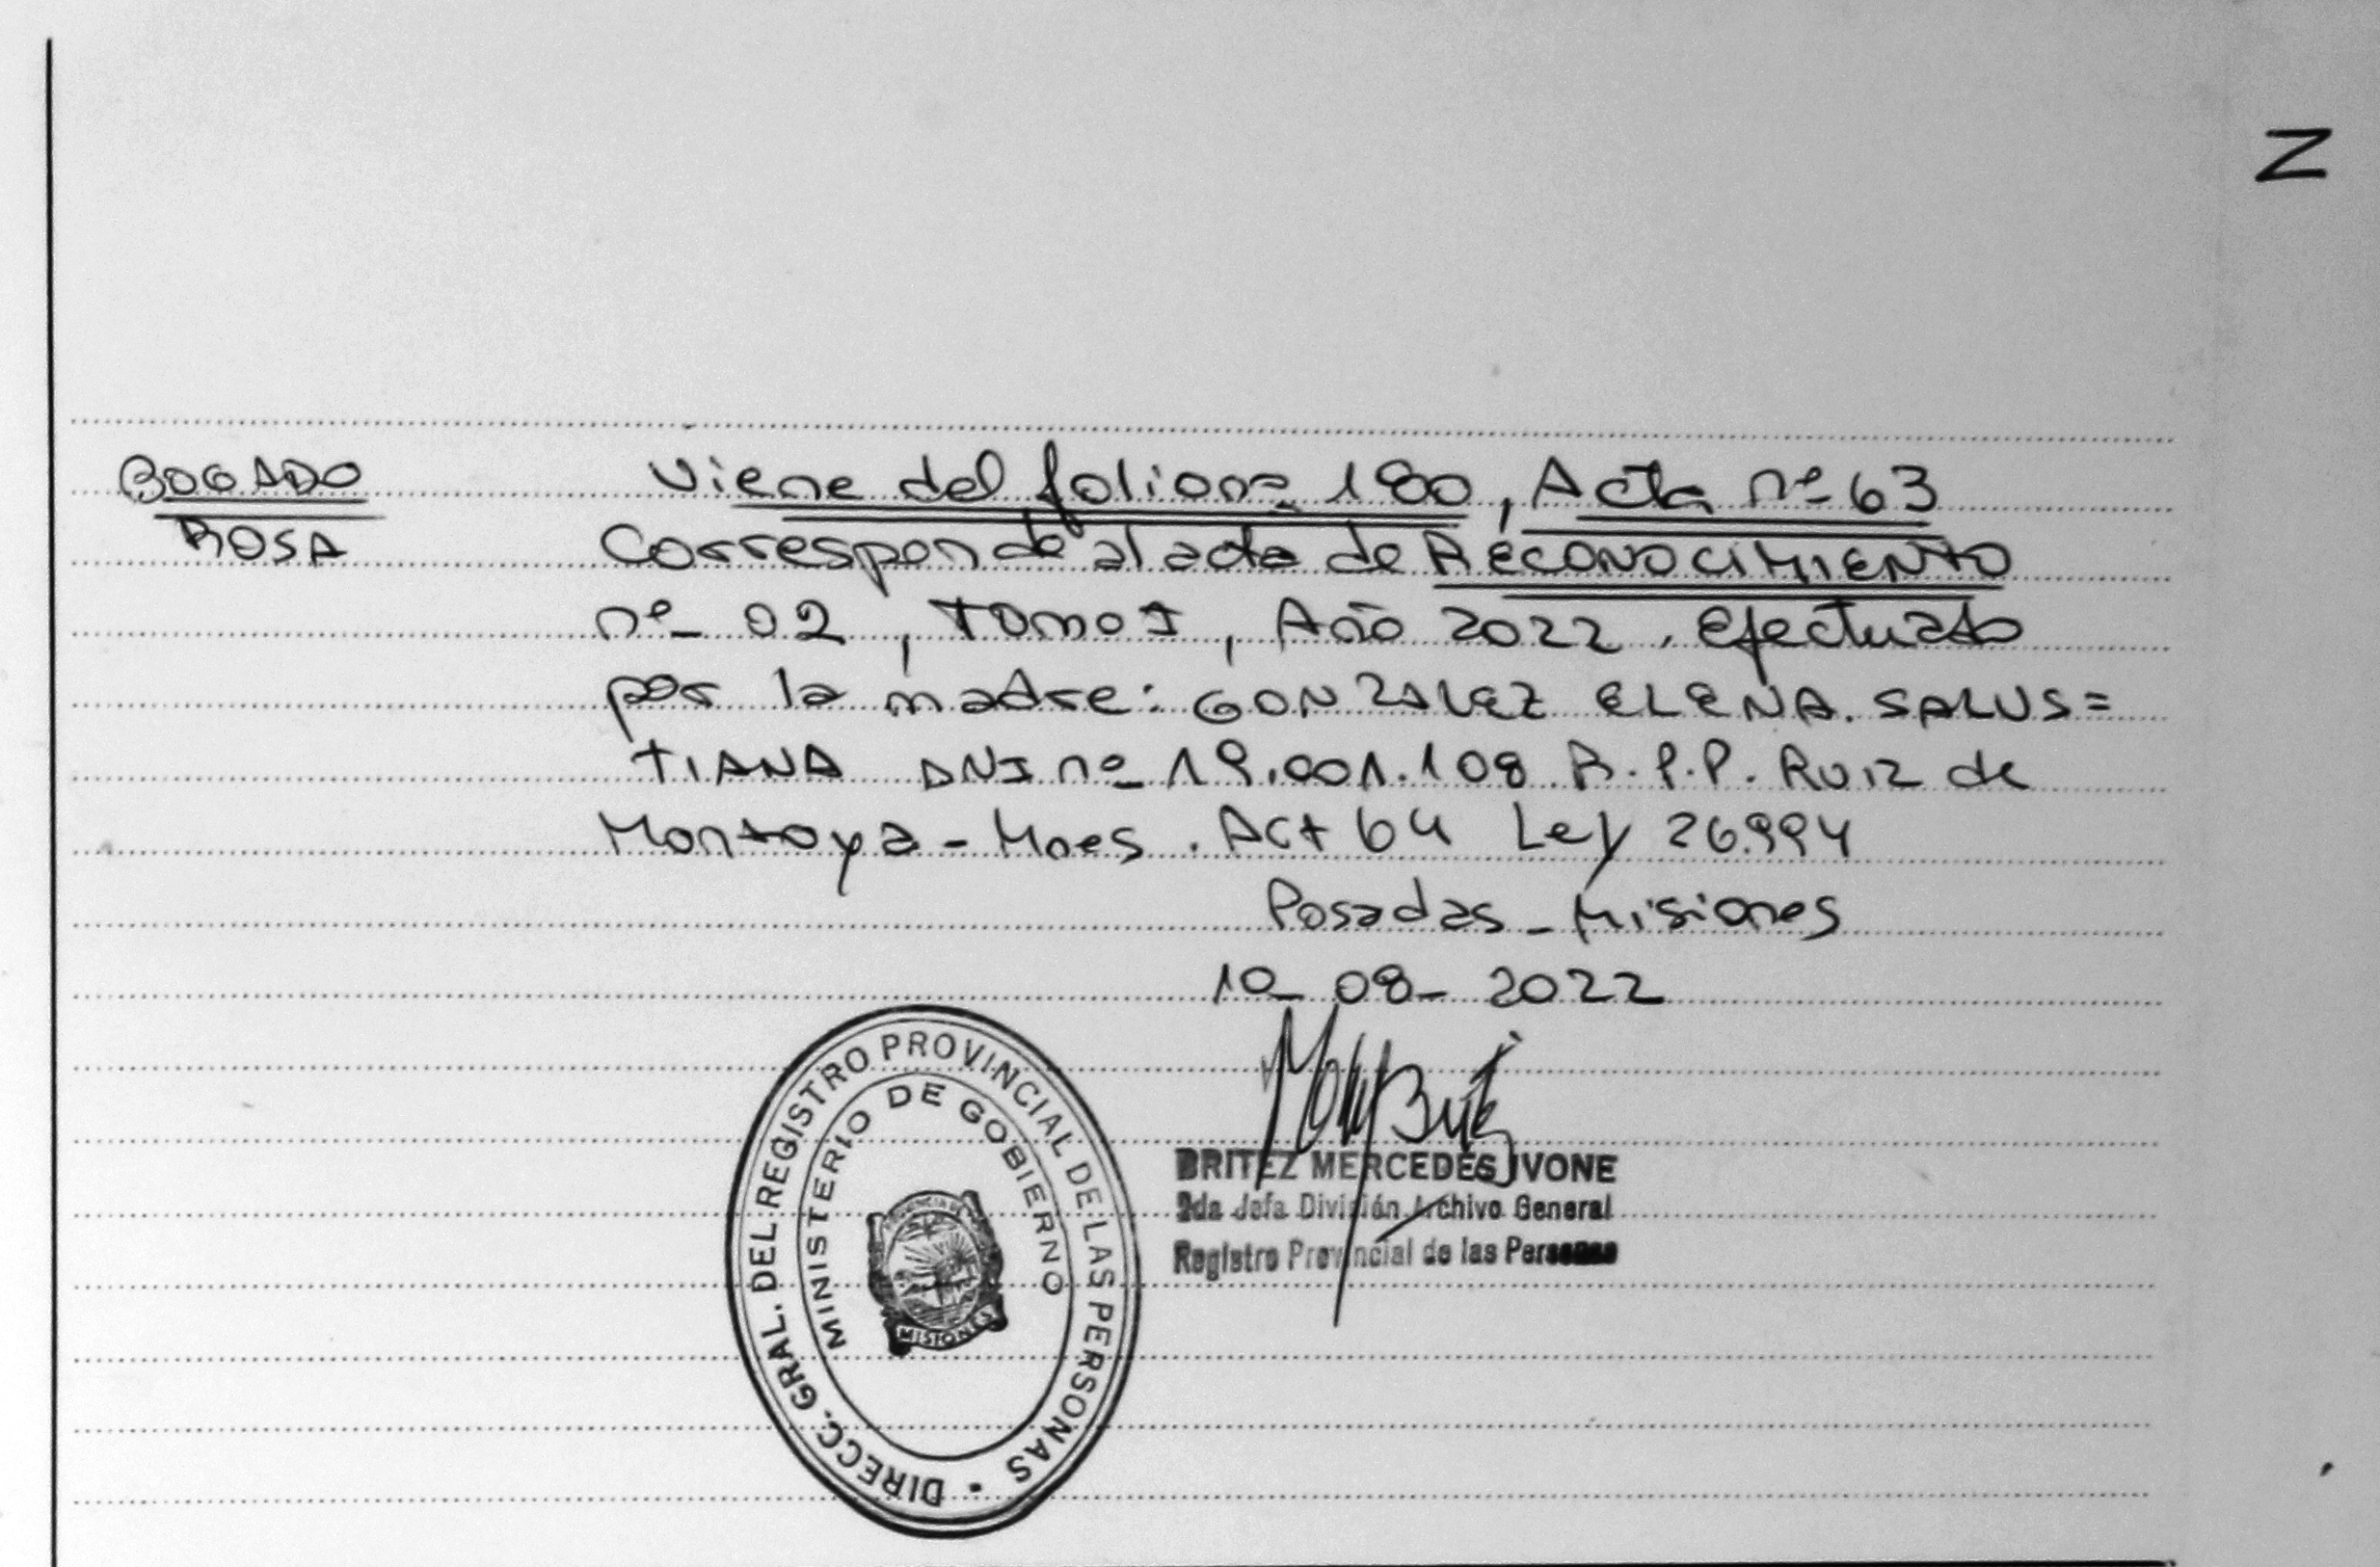 N
BOGADO
ROSA
Viene del folio nº 180, Acta nº 63
Corresponde al acta de RECONOCIMIENTO
nº 02, TOMO I, Año 2022. Efectuado
por la madre: GONZALEZ ELENA. SALUS=
TIANA DNI nº 19.001.108 R.P.P. Ruiz de
Montoya - Mnes. Act 64 Ley 26.994
Posadas - Misiones
10-08-2022
BRITEZ MERCEDES IVONE
2da Jefa División Archivo General
Registro Provincial de las Personas
DIRECC. GRAL. DEL REGISTRO PROVINCIAL DE LAS PERSONAS
MINISTERIO DE GOBIERNO
MISIONES